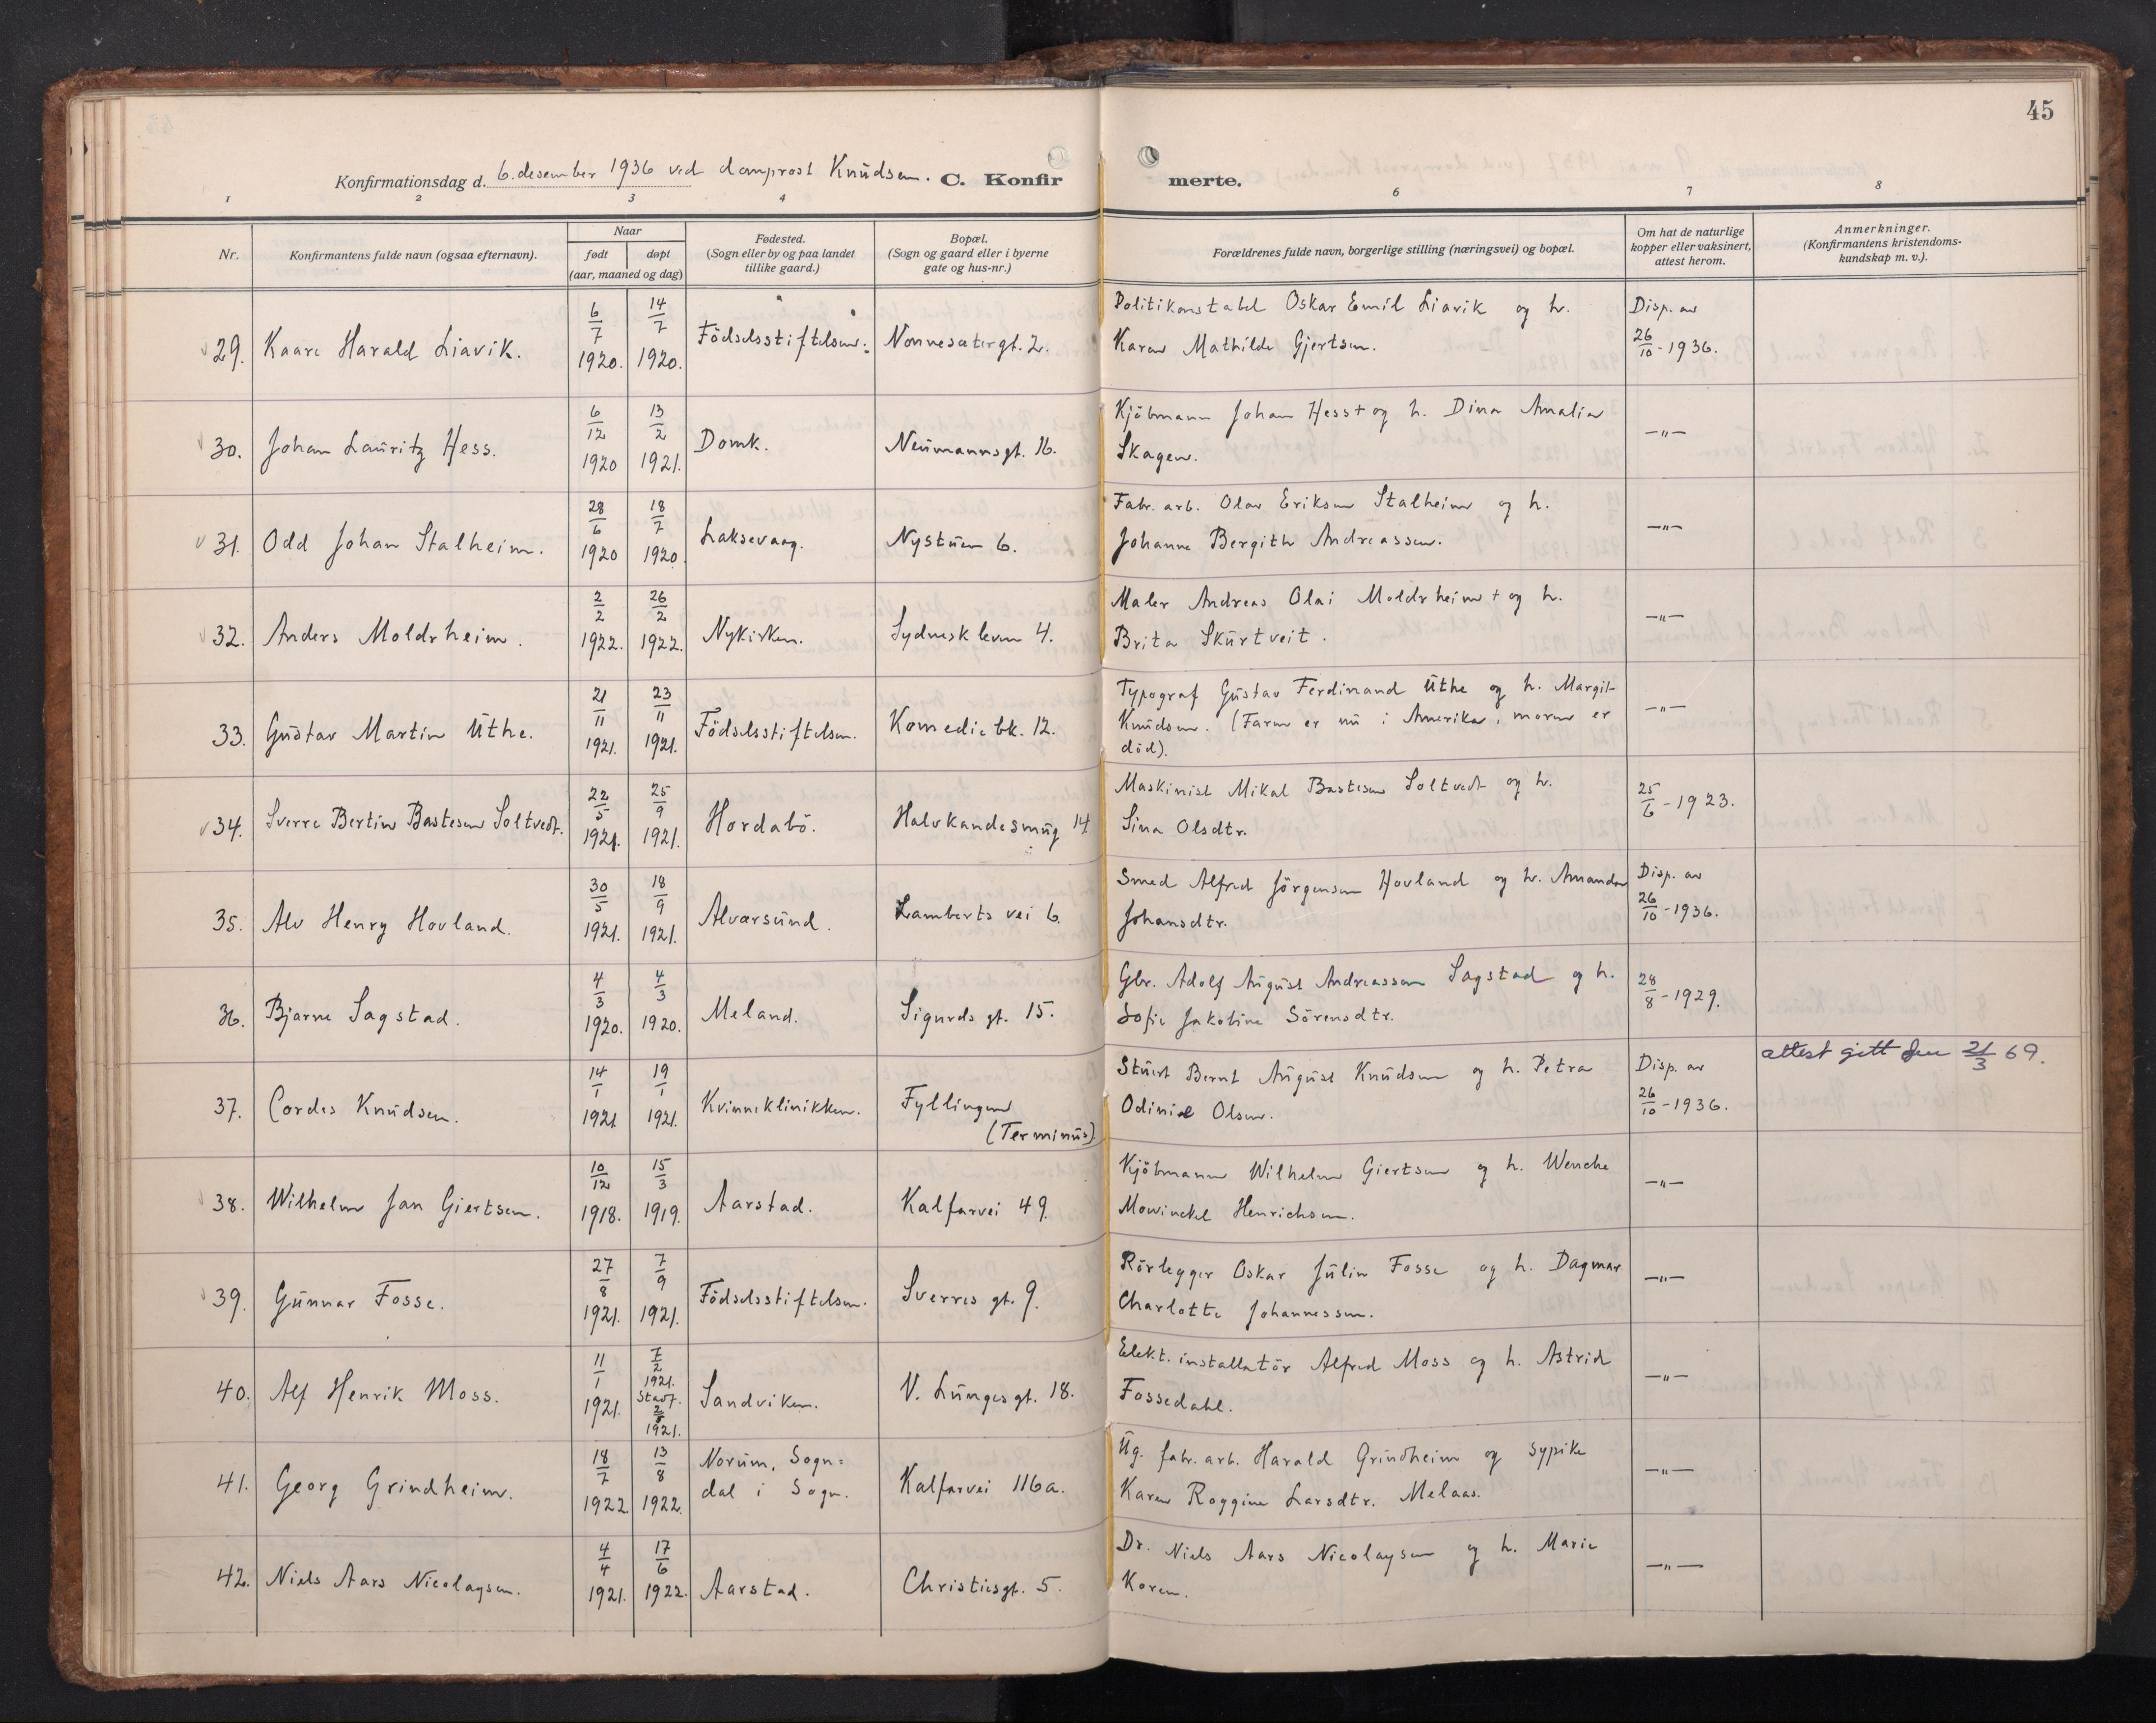 45
Konfirmationsdag d. 6. desember 1936 ved domprost Knudsen. C. Konfir merte.
1 2 3 4 6 7 8
Nr.
Konfirmantens fulde navn (ogsaa efternavn).
Naar
født
døpt
(aar, maaned og dag)
Fødested.
(Sogn eller by og paa landet
tillike gaard.)
Bopæl.
(Sogn og gaard eller i byerne
gate og hus-nr.)
Forældrenes fulde navn, borgerlige stilling (næringsvei) og bopæl.
Om hat de naturlige
kopper eller vaksinert,
attest herom.
Anmerkninger.
(Konfirmantens kristendoms-
kundskap m. v.).
29. Kaare Harald Liavik. 6/7 1920. 14/7 1920. Födselsstiftelsen. Nonnesetergt. 2. Politikonstabel Oskar Emil Liavik og h. Disp. av
Karen Mathilde Gjertsen. 26/10-1936.
30. Johan Lauritz Hess. 6/12 1920 13/2 1921. Domk. Neumannsgt. 16. Kjöbmann Johan Hess + og h. Dina Amalia —"—
Skagen.
31. Odd Johan Stalheim. 28/6 1920 18/7 1920. Laksevaag. Nystuen 6. Fabr. arb. Olav Eriksen Stalheim og h. —"—
Johanne Bergithe Andreassen.
32. Anders Moldrheim. 2/2 1922. 26/2 1922. Nykirken. Sydnesklevn 4. Maler Andreas Olai Moldrheim + og h. —"—
Brita Skurtveit.
33. Gustav Martin Uthe. 21/11 1921. 23/11 1921. Födselsstiftelsen. Komediebk. 12. Typograf Gustav Ferdinand Uthe og h. Margit —"—
Knudsen. (Faren er nu i Amerika, moren er
död).
34. Sverre Bertin Bastesen Soltvedt. 22/5 1921. 25/9 1921. Hordabö. Halvkandesmug 14. Maskinist Mikal Bastesen Soltvedt og h. 25/6-1923.
Sina Olsdtr.
35. Alv Henry Hovland. 30/5 1921. 18/9 1921. Alversund. Lamberts vei 6. Smed Alfred Jörgensen Hovland og h. Amanda Disp. av
Johansdtr. 26/10-1936.
36. Bjarne Sagstad. 4/3 1920. 4/3 1920. Meland. Sigurds gt. 15. Gbr. Adolf August Andreassen Sagstad og h. 28/8-1929.
Sofie Jakobine Sörensdtr.
37. Cordes Knudsen. 14/1 1921 19/1 1921. Kvinneklinikken. Fyllingen
(Terminus) Stuert Bernt August Knudsen og h. Petra Disp. av attest gitt den 21/3 69.
Odinie Olsen. 26/10-1936.
38. Wilhelm Jan Giertsen. 10/12 1918. 15/3 1919. Aarstad. Kalfarvei 49. Kjöbmann Wilhelm Giertsen og h. Wenche —"—
Mowinckel Henrichsen.
39. Gunnar Fosse. 27/8 1921. 7/9 1921. Födselsstiftelsen. Sverres gt. 9. Rörlegger Oskar Julin Fosse og h. Dagmar —"—
Charlotte Johannessen.
40. Alf Henrik Moss. 11/1 1921. 7/2 1921. Stadf. 1921. Sandviken. V. Lungesgt. 18. Elekt. installatör Alfred Moss og h. Astrid —"—
Fossedahl.
41. Georg Grindheim. 18/7 1922 13/8 1922. Norum, Sogn=
dal i Sogn. Kalfarvei 116a. Ug. fabr. arb. Harald Grindheim og sypike —"—
Karen Roggine Larsdtr. Melaas.
42. Niels Aars Nicolaysen. 4/4 1921. 17/6 1922. Aarstad. Christiesgt. 5. Dr. Niels Aars Nicolaysen og h. Marie —"—
Koren.